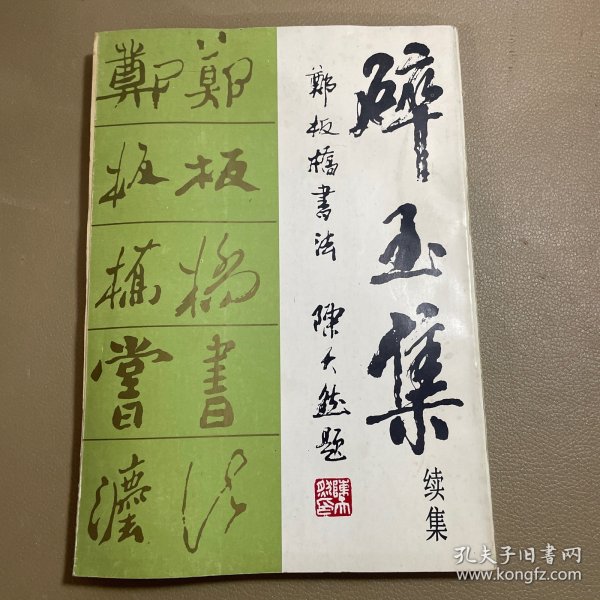 碎玉集
续集
鄭板橋書法
陳天然題
鄭板橋書法
鄭板橋書灋
陳天然印
孔夫子旧书网
www.kongfz.com